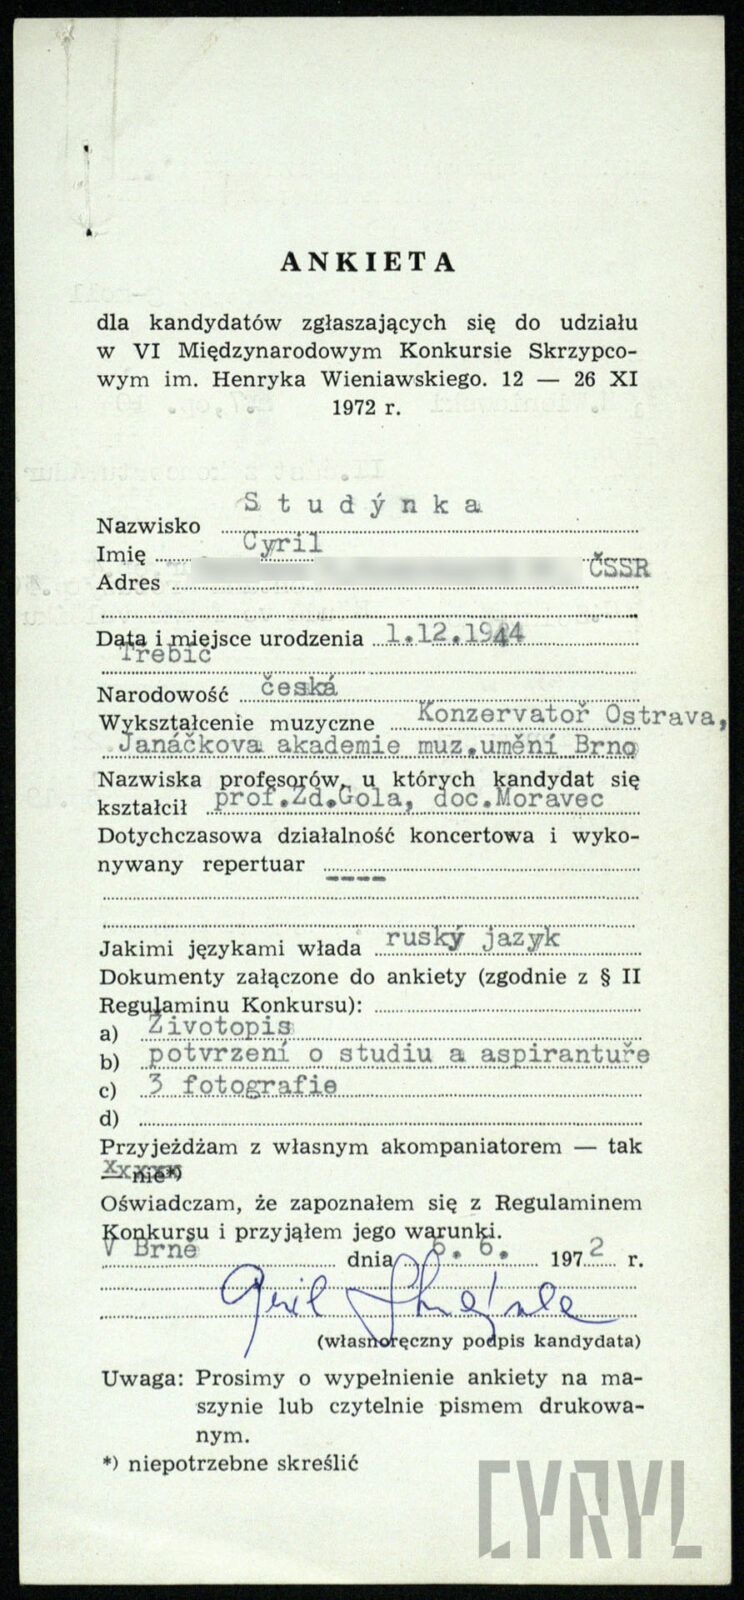 ANKIETA
dla kandydatów zgłaszających się do udziału
w VI Międzynarodowym Konkursie Skrzypco-
wym im. Henryka Wieniawskiego. 12 — 26 XI
1972 r.
Nazwisko Studýnka
Imię Cyril
Adres ČSSR
Data i miejsce urodzenia 1.12.1944
Třebíč
Narodowość česká
Wykształcenie muzyczne Konzervatoř Ostrava,
Janáčkova akademie muz.umění Brno
Nazwiska profesorów, u których kandydat się
kształcił prof.Zd.Gola, doc.Moravec
Dotychczasowa działalność koncertowa i wyko-
nywany repertuar ----
Jakimi językami włada ruský jazyk
Dokumenty załączone do ankiety (zgodnie z § II
Regulaminu Konkursu):
a) Životopis
b) potvrzení o studiu a aspirantuře
c) 3 fotografie
d)
Przyjeżdżam z własnym akompaniatorem — tak
— nie*)
Oświadczam, że zapoznałem się z Regulaminem
Konkursu i przyjąłem jego warunki.
V Brně dnia 6. 6. 1972 r.
Cyril Studýnka
(własnoręczny podpis kandydata)
Uwaga: Prosimy o wypełnienie ankiety na ma-
szynie lub czytelnie pismem drukowa-
nym.
*) niepotrzebne skreślić
CYRYL